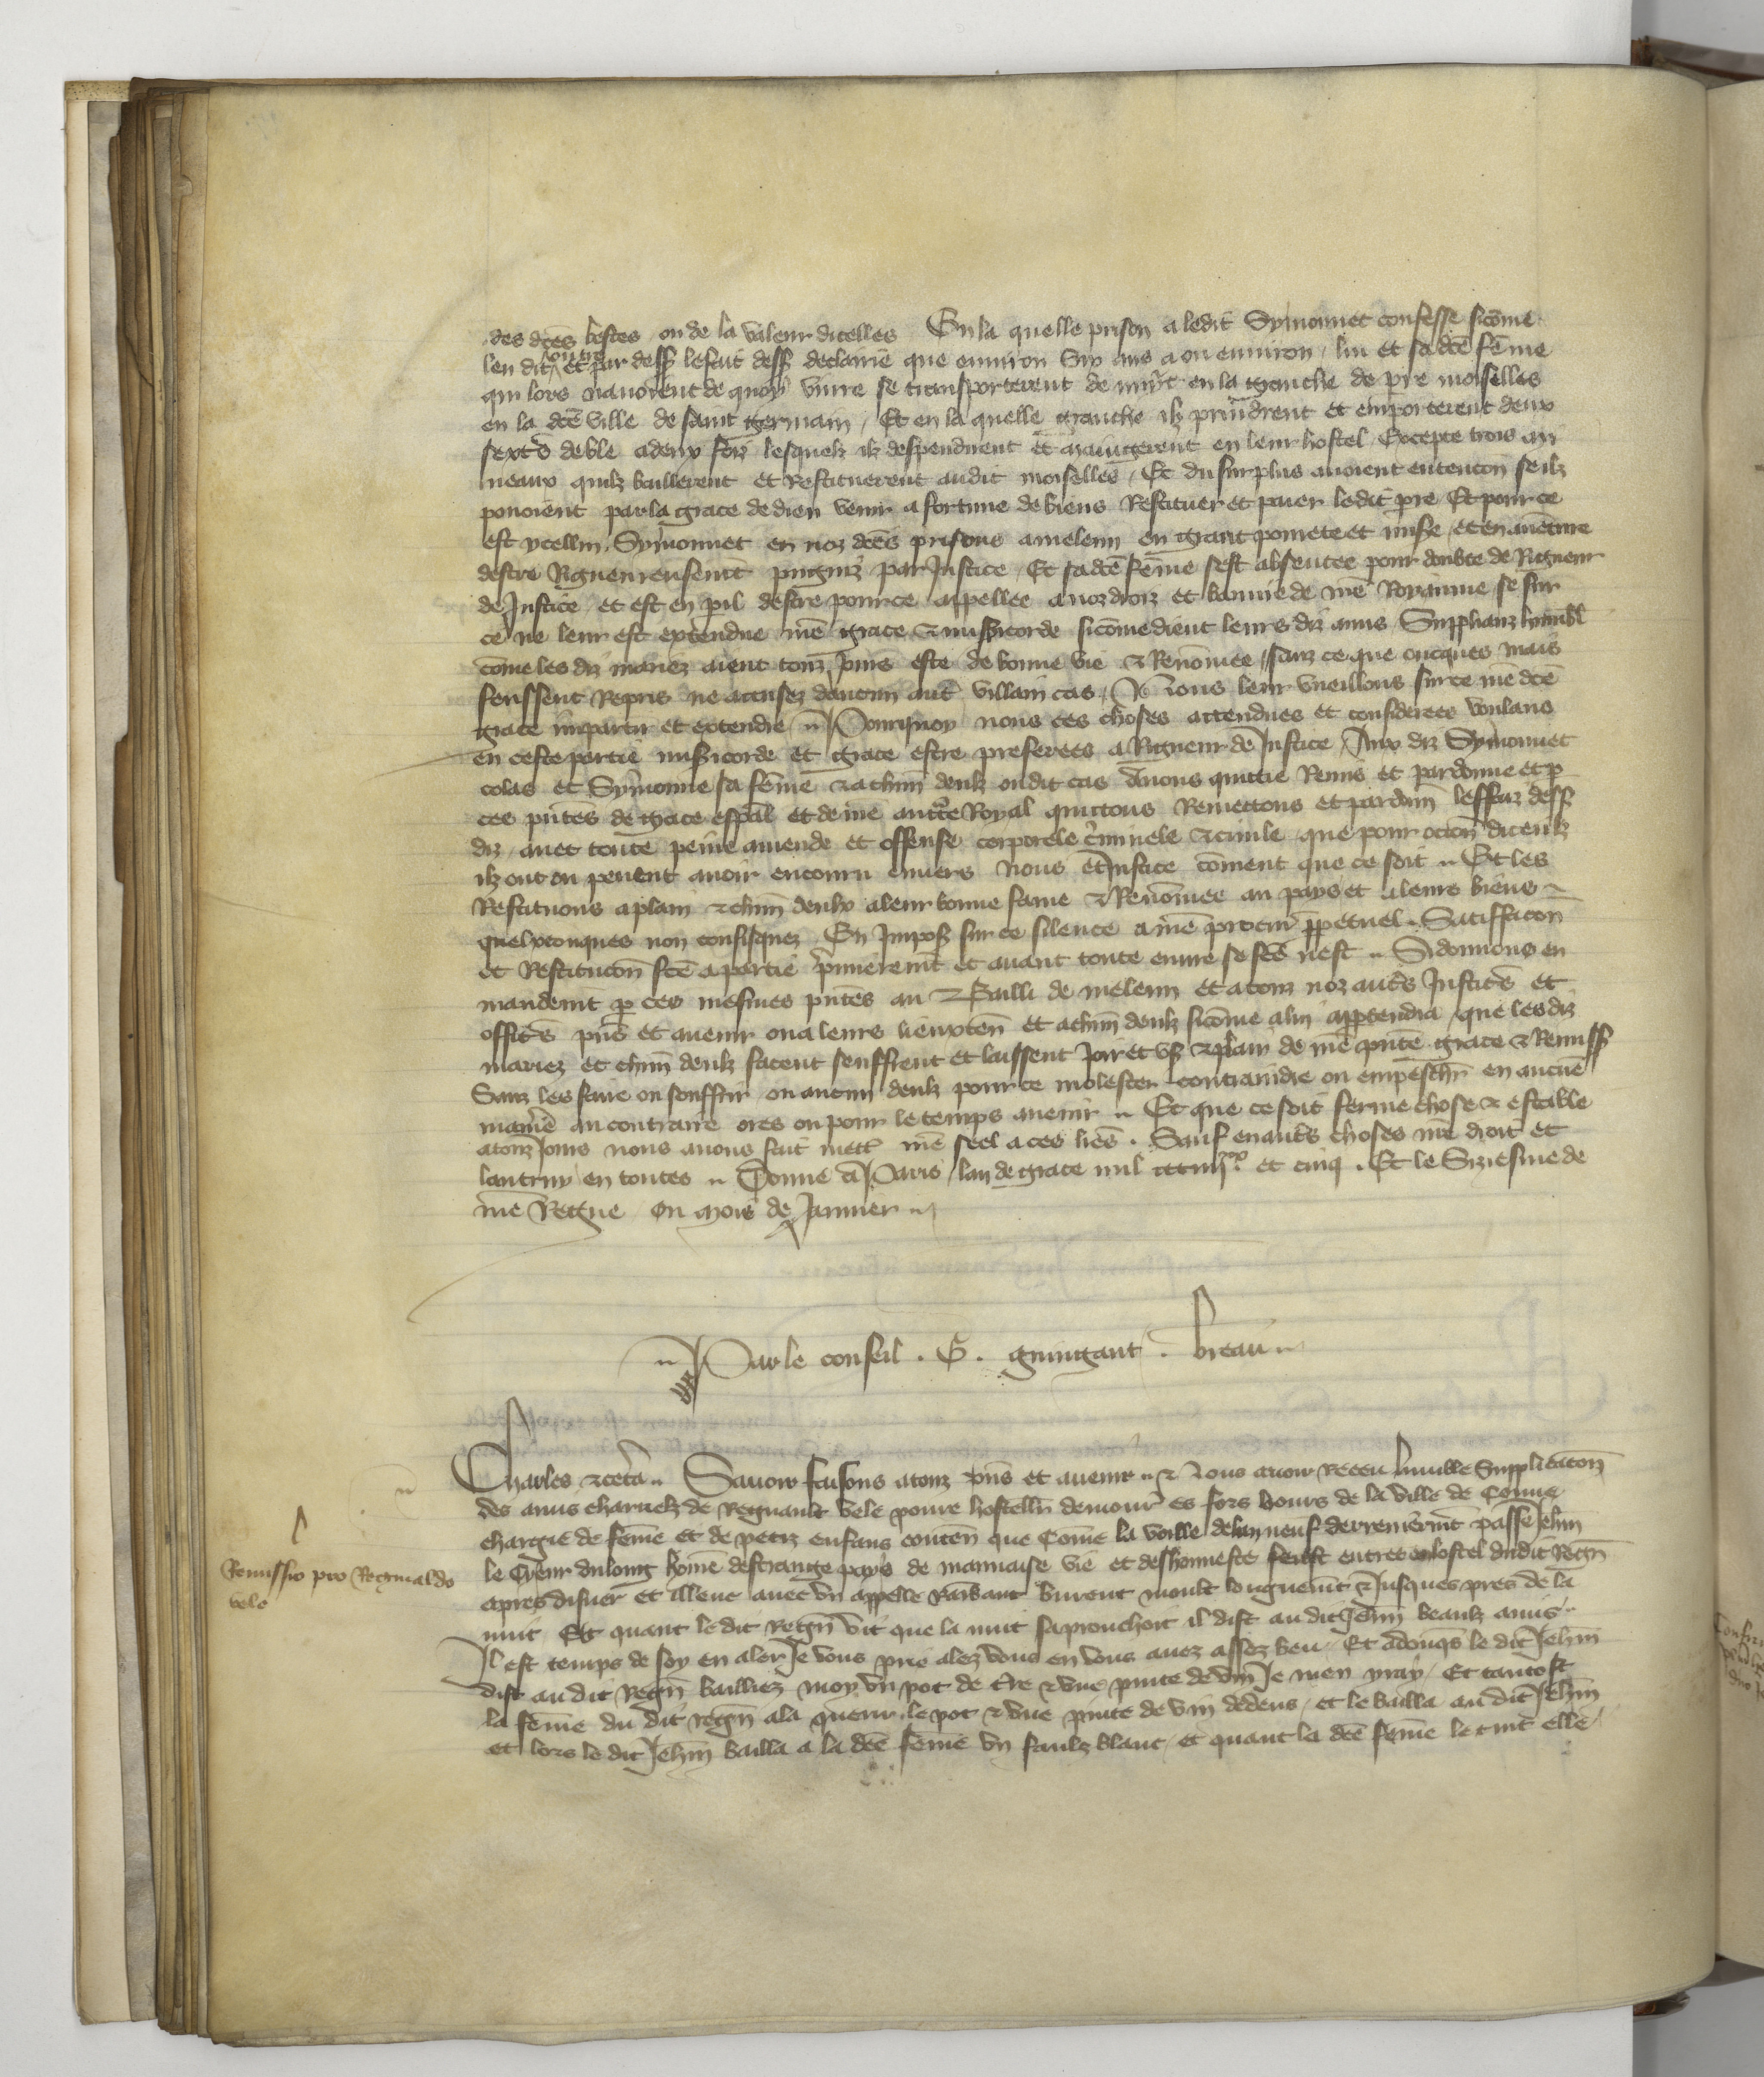 des dces bestes ou de la valeur dicelles En la quelle prison a ledit Symonnet confesse sicome
len dit oultre et par dess le fait dess declairie que environ six ans a ou environ lui et sa dce feme
qui lors navoient de quoy vivre se transporterent de nuyt en la granche de pre moiselles
en la dce ville de saint germain Et en la quelle granche ilz prindrent et emporterent deux
sextrs de ble a deux foiz lesquelz ilz despendirent et mangerent en leur hostel Excepte trois mi
neaux quilz baillerent et Restituerent audit moiselles Et du surplus avoient entencon se ilz
povoient par la grace de dieu venir a fortune de biens Restituer et paier ledit pre Et pour ce
est ycellui Symonnet en noz dces prisons a meleun en grant povrete et mise et en aventure
destre Rigueureusemt pugniz par Justice Et sa dce feme sest absentee pour doubte de Rigueur
de Justice et est en pil destre pour ce appellee a noz droiz et bannie de nre Royaume se sur
ce ne leur est extendue nre grace & misicorde sicome dient leurs diz amis Supplianz humbl
come les diz mariez aient touz jours este de bonne vie & Renomee sanz ce que oncques mais
feussent Repris ne accusez daucun autre villain cas Nous leur vueillons sur ce nre dce
grace impartir et extendre Pourquoy nous ces choses attendues et considerees voulans
en ceste partie misicorde et grace estre preferees a Rigueur de Justice Aux diz Symonnet
colas et Symonne sa feme & a chun deulz ou dit cas Avons quittie Remis et pardonne et p
ces pntes de grace espal et de nre auctte Royal quittons Remettons et pardonn les faiz dess
diz avec toute peine amende et offense corporele criminele & civile que pour occon diceulz
ilz ont ou pevent avoir encouru envers Nous et Justice coment que ce soit Et les
Restituons a plain & chun deulx a leur bonne fame & Renomee au pays et a leurs biens
quelxconques non confisquez En Imposs sur ce silence a nre procur ppetuel Satisfacon
et Restitucon fce a partie primieremt et avant toute euvre se fce nest Si donnons en
mandemt p ces mesmes pntes au Bailli de meleun et a touz noz autrs Justics et
officrs pns et avenir ou a leurs lieuxten et a chun deulz sicome a lui apptendra que les diz
mariez et chun deulz facent seuffrent et laissent Joir et us & plain de nre pnte grace & Remiss
Sanz les faire ou souffrir ou aucun deulz pour ce molester contraindre ou empeschr en aucune
maniere au contraire ores ou pour le temps avenir Et que ce soit ferme chose & estable
a touz Jours nous avons fait mettr nre seel a ces lres . Sauf en autrs choses nre droit et
lautruy en toutes Donne a Paris lan de grace mil ccc iiii xx et cinq . Et le Siziesme de
nre Regne ou mois de Janvier
Par le conseil . G . guingant . breau
Charles & cetera Savoir faisons a touz pns et avenir Nous avoir Receu humble Supplicacon
des amis charnelz de Regnault vele povre hostellr demour es fors bours de la ville de Conne
chargie de feme et de petiz enfans conten que Come la voille de lan neuf derrenieremt passe Jehan
le Cveur du long home destrange pays de mauvaise vie et deshonneste feust entre en lostel dudit Regn
apres disner et illeuc avec un appelle Rabant burent moult longuemt & Jusques pres de la
nuit Et quant le dit Regn vit que la nuit saprouchoit il dist au dit Jehan beaulz amis
Il est temps de soy en aler Je vous prie alez vous en vous avez assez beu Et adonqs le dit Jehan
dist au dit Regn bailliez moy un pot de tre & une pinte de vin Je men yray Et tantost
la feme du dit Regn ala querir le pot & une pinte de vin dedens et le bailla au dit Jehan
et lors le dit Jehan bailla a la dce feme un faulz blanc et quant la dce feme le tint elle
Remissio pro Reginaldo
vele